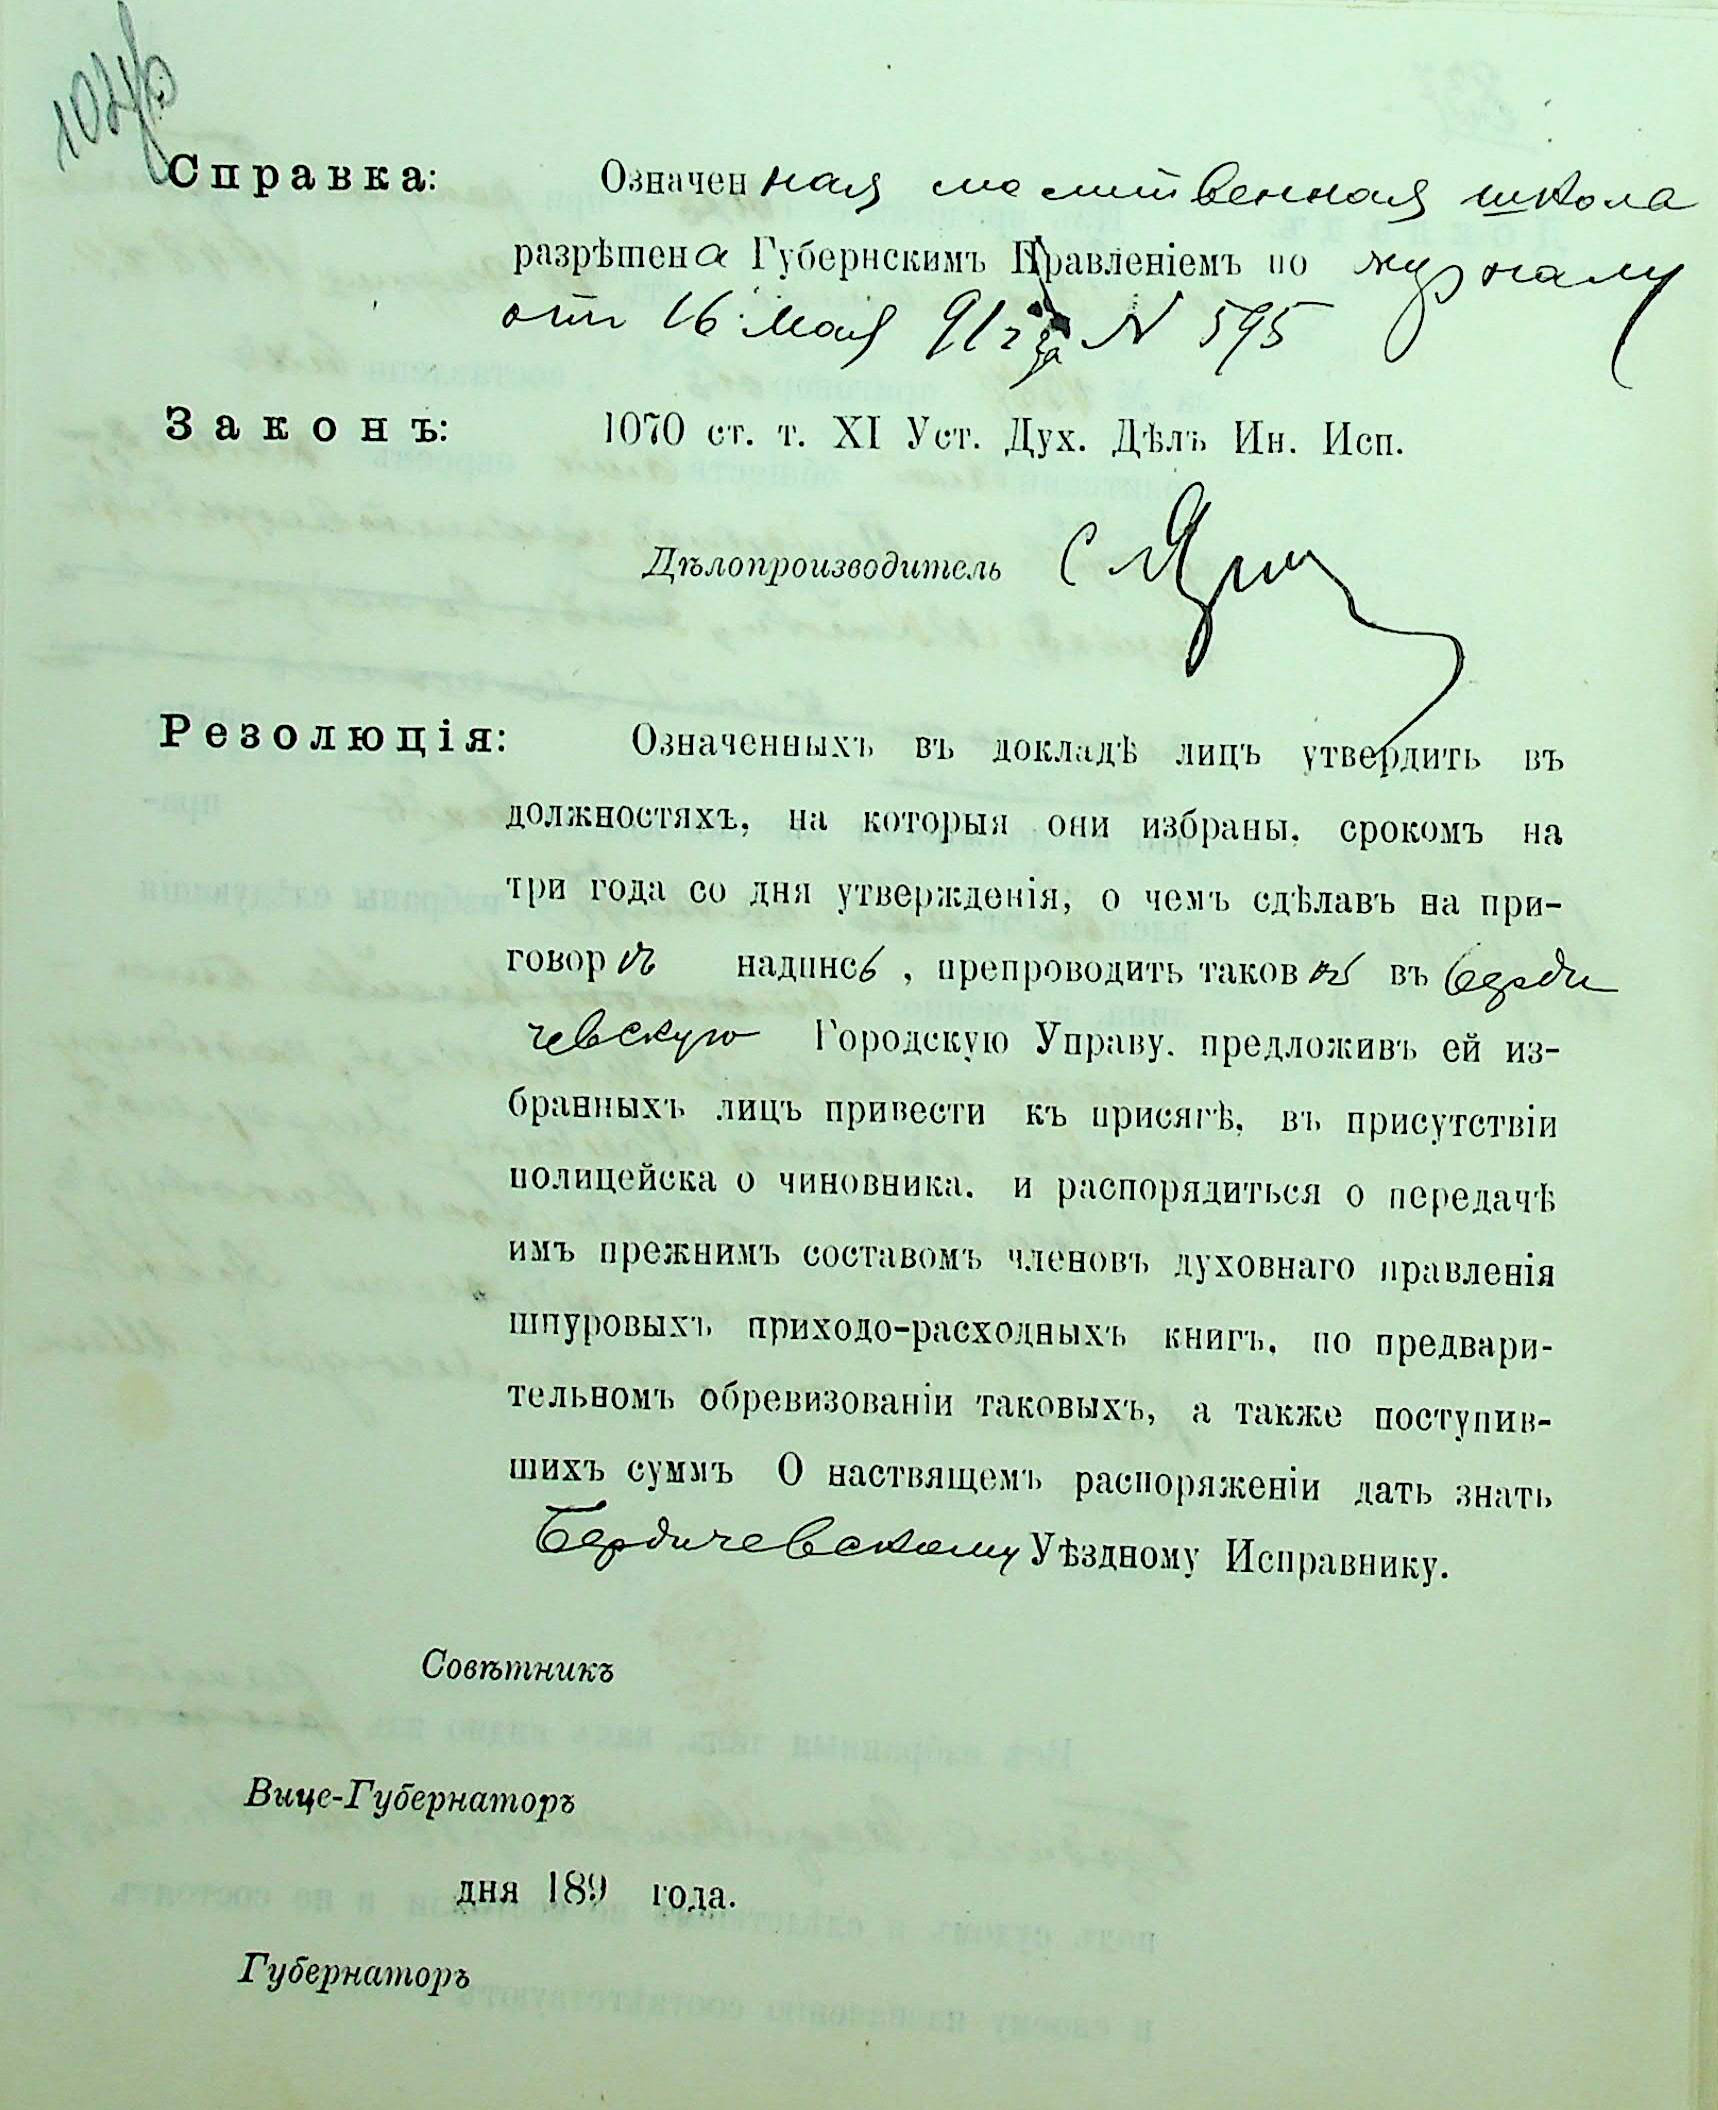 Справка: Означенная молитвенная школа
разрѣшена Губернскимъ Правленіемъ по журналу
отъ 16 Мая 91 г за N 595
Законъ: 1070 ст. т. XI Уст. Дух. Дѣлъ Ин. Исп.
Дѣлопроизводитель
Резолюція: Означенныхъ въ докладѣ лицъ утвердить въ
должностяхъ, на которыя они избраны, срокомъ на
три года со дня утвержденія, о чемъ сдѣлавъ на при-
говорѣ надпись, препроводить таковой въ Берди
чевскую Городскую Управу. предложивъ ей из-
бранныхъ лицъ привести къ присягѣ, въ присутствіи
полицейска о чиновника. и распорядиться о передачѣ
имъ прежнимъ составомъ членовъ духовнаго правленія
шнуровыхъ приходо-расходныхъ книгъ, по предвари-
тельномъ обревизованіи таковыхъ, а также поступив-
шихъ суммъ О наствящемъ распоряженіи дать знать
Бердичевскому Уѣздному Исправнику.
Совѣтникъ
Вице-Губернаторъ
дня 189 года.
Губернаторъ